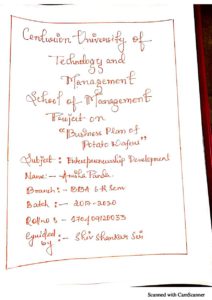 Centurion University of
Technology and
Management
School of Management
Project on
"Business Plan of
Potato Wafers"
Subject: Entrepreneurship Development
Name:-
Branch:- BBA 6th Sem
Batch:- 2017-2020
Guided by:- Shiv Shankar
Scanned with CamScanner